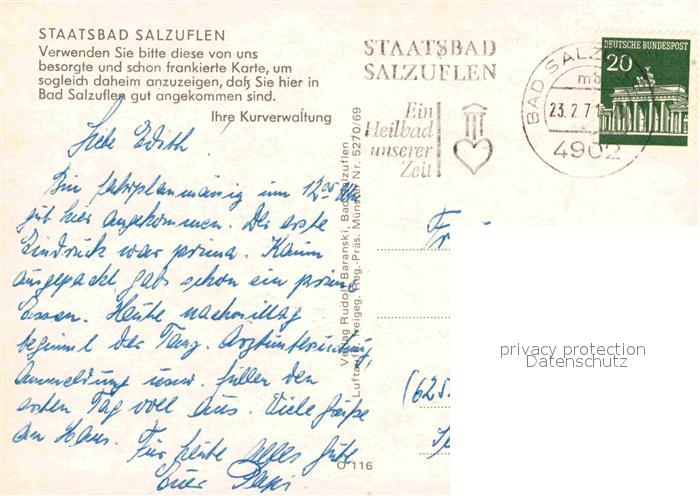 STAATSBAD SALZUFLEN
Verwenden Sie bitte diese von uns
besorgte und schon frankierte Karte, um
sogleich daheim anzuzeigen, daß Sie hier in
Bad Salzuflen gut angekommen sind.
Ihre Kurverwaltung
Liebe Edith!
Bin fahrplanmässig um 12⁰⁵ Uhr
gut hier angekommen. Der erste
Eindruck war prima. Kaum
ausgepackt, gabs schon ein prima
Essen. Heute nachmittag
beginnt der Tanz. Arztuntersuchung,
Anmeldung usw. füllen den
ersten Tag voll aus. Viele Grüße
an Hans. Für heute alles Gute
Euer Papi
Verlag Rudolf Baranski, Bad Salzuflen
Luftaufn. freigeg. Reg.-Präs. Münster Nr. 5270/69
O 116
STAATSBAD
SALZUFLEN
Ein
Heilbad
unserer
Zeit
BAD SALZ
23.2.71
4902
DEUTSCHE BUNDESPOST
20
privacy protection
Datenschutz